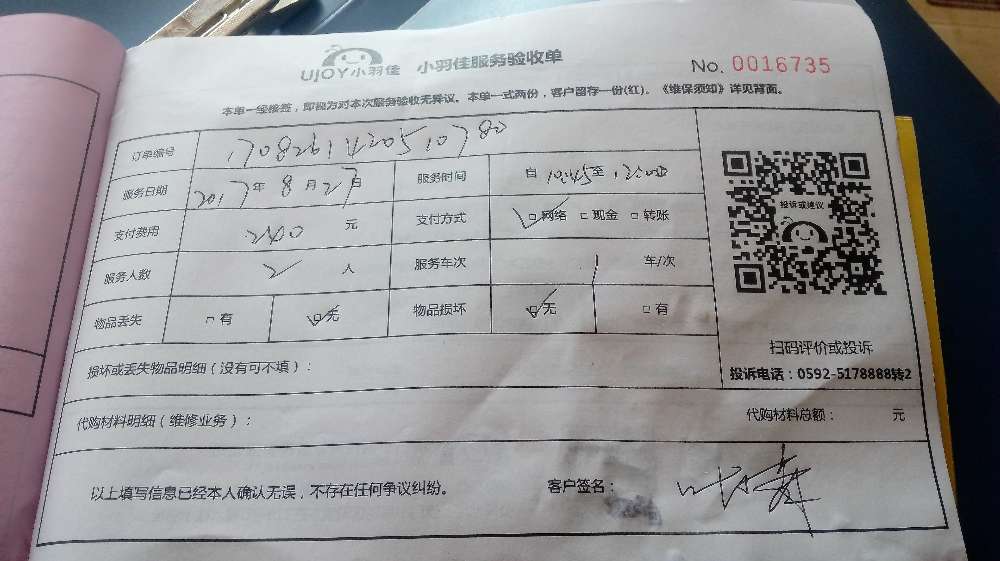 UJOY小羽佳 小羽佳服务验收单 No. 0016735
本单一经接签，即视为对本次服务验收无异议。本单一式两份，客户留存一份(红)。《维保须知》详见背面。
订单编号 1708261420510780
服务日期 2017年8月27日 服务时间 自10:45至12:00
支付费用 240元 支付方式 ☑网络 □现金 □转账
投诉或建议
服务人数 2人 服务车次 1车/次
物品丢失 □有 ☑无 物品损坏 ☑无 □有
扫码评价或投诉
损坏或丢失物品明细（没有可不填）：
投诉电话：0592-5178888转2
代购材料明细（维修业务）： 代购材料总额： 元
以上填写信息已经本人确认无误，不存在任何争议纠纷。 客户签名：